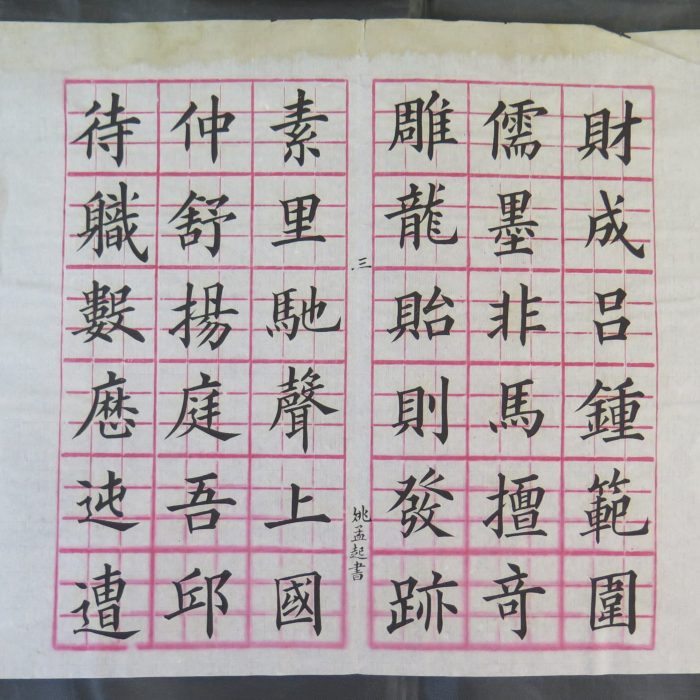 財成呂鍾範圍
儒墨非馬擅奇
雕龍貽則發跡
三
姚孟起書
素里馳聲上國
仲舒揚庭吾邱
待職數應迍遭